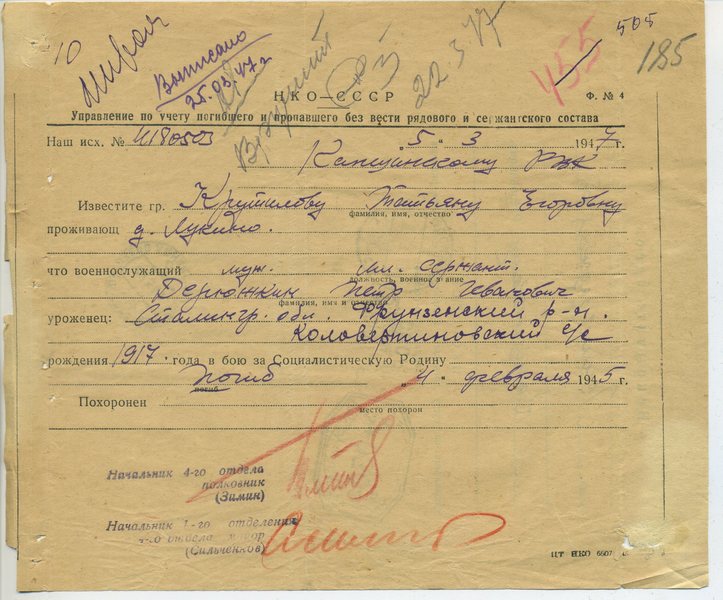 10
Выписано
25.03.47 г
22.3.47
455
505
185
НКО—СССР
Ф. № 4
Управление по учету погибшего и пропавшего без вести рядового и сержантского состава
Наш исх. № 4180503 „5“ 3 1947 г.
РВК
Известите гр. Татьяну Егоровну
фамилия, имя, отчество
проживающ д. Лукино.
что военнослужащий муж мл. сержант.
должность, военное звание
Дерюжкин Петр Иванович
фамилия, имя и отчество
уроженец: Сталингр. обл. Фрунзенский р-н.
с/с
рождения 1917 года в бою за Социалистическую Родину
погиб „4“ февраля 1945 г.
погиб
Похоронен
место похорон
Начальник 4-го отдела
полковник
(Зимин)
Начальник 1-го отделения
4-го отдела майор
(Сильченков)
ЦТ НКО 6507